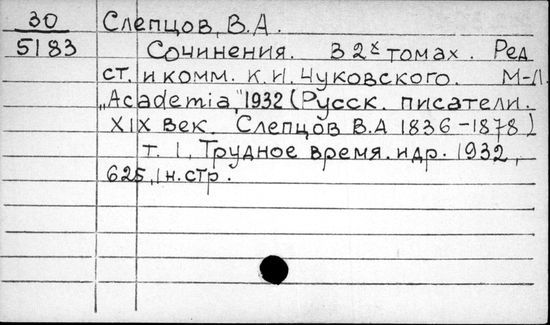 30 Слепцов, В.А.
5183 Сочинения. В 2х томах. Ред
ст. и комм. К.И. Чуковского. М-Л.
„Academia", 1932 (Русск. писатели.
XIX век. Слепцов В.А 1836-1878)
т. 1, Трудное время. идр. 1932,
625, 1н.стр.